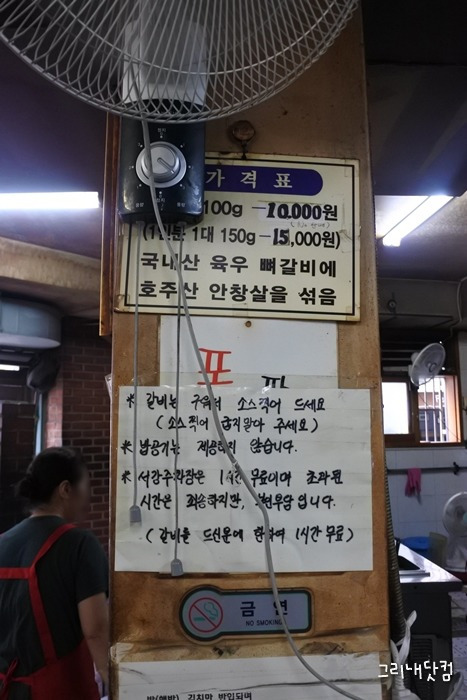 가격표
100g - 10,000원
1대 150g - 15,000원)
국내산 육우 뼈갈비에
호주산 안창살을 섞음
포
* 갈비는 구워서 소스찍어 드세요
(소스찍어 굽지말아 주세요)
* 밥공기는 제공하지 않습니다.
* 서강주차장은 1시간 무료이며 초과된
시간은 죄송하지만, 본인부담 입니다.
(갈비를 드신분에 한하여 1시간 무료)
금연
NO SMOKING
김치만 반입되며
그리내닷컴